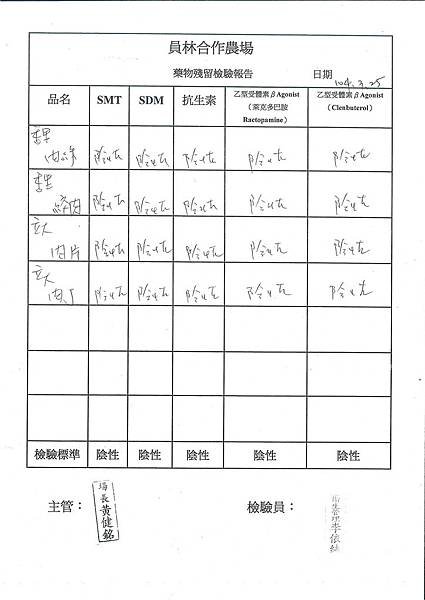 員林合作農場
藥物殘留檢驗報告
日期 104.3.25
品名 SMT SDM 抗生素 乙型受體素βAgonist（萊克多巴胺Ractopamine） 乙型受體素βAgonist（Clenbuterol）
肉絲 陰性 陰性 陰性 陰性 陰性
絞肉 陰性 陰性 陰性 陰性 陰性
肉片 陰性 陰性 陰性 陰性 陰性
肉丁 陰性 陰性 陰性 陰性 陰性
檢驗標準 陰性 陰性 陰性 陰性 陰性
主管： 場長 黃健銘 檢驗員：